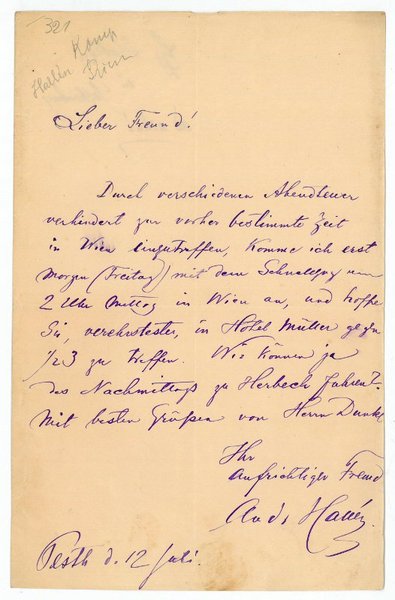 321
Hallén Komp
Wien
Lieber Freund!
Durch verschiedenen Abendteuer
verhindert zur vorher bestimmte Zeit
in Wien einzutreffen, komme ich erst
Morgen (Freitag) mit dem Schnellzug um
2 Uhr Mittag in Wien an, und hoffe
Sie, verehrtester, in Hôtel Müller gegen
1/2 3 zu treffen. Wir können ja
des Nachmittags zu Herbeck fahren?
Mit besten Grüßen von Herrn Dunkl
Ihr
aufrichtiger Freund
Ands Hallén
Pesth d. 12 Juli.